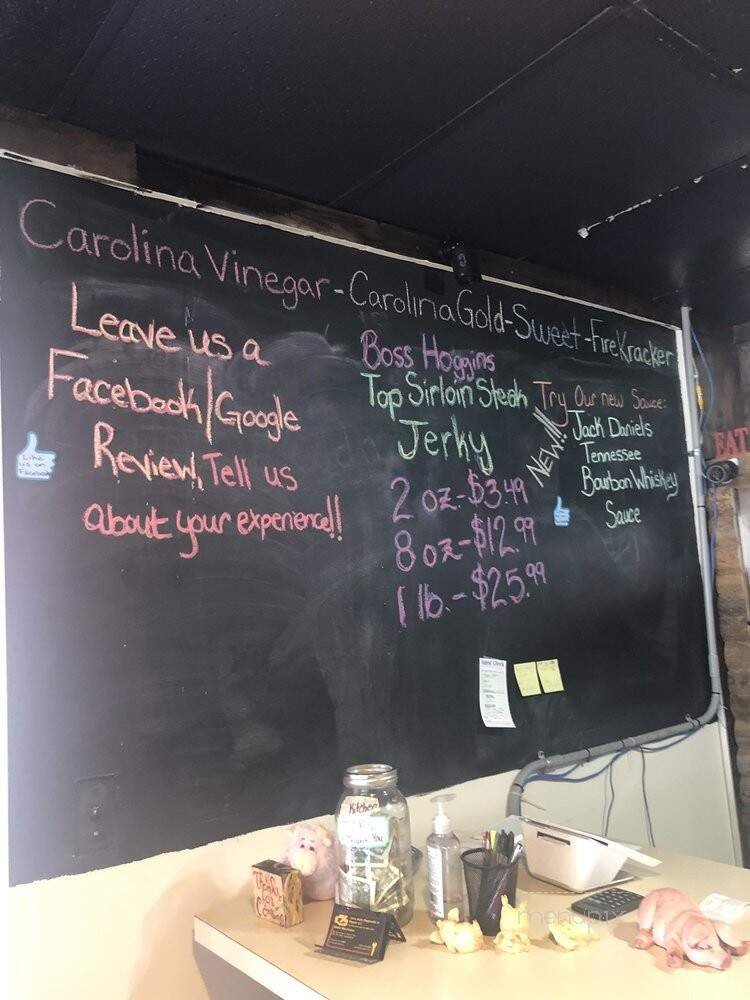 Carolina Vinegar - Carolina Gold - Sweet - FireKracker
Leave us a
Facebook/Google
Review, Tell us
about your experience!!
Like
us on
Facebook
Boss Hoggins
Top Sirloin Steak
Jerky
2 oz. - $3.49
8 oz - $12.99
1 lb. - $25.99
NEW!!!
Try Our new Sauce:
Jack Daniels
Tennessee
Bourbon Whiskey
Sauce
EAT
Guest Check
Kitchen
Thank You
Thank
you
menupix